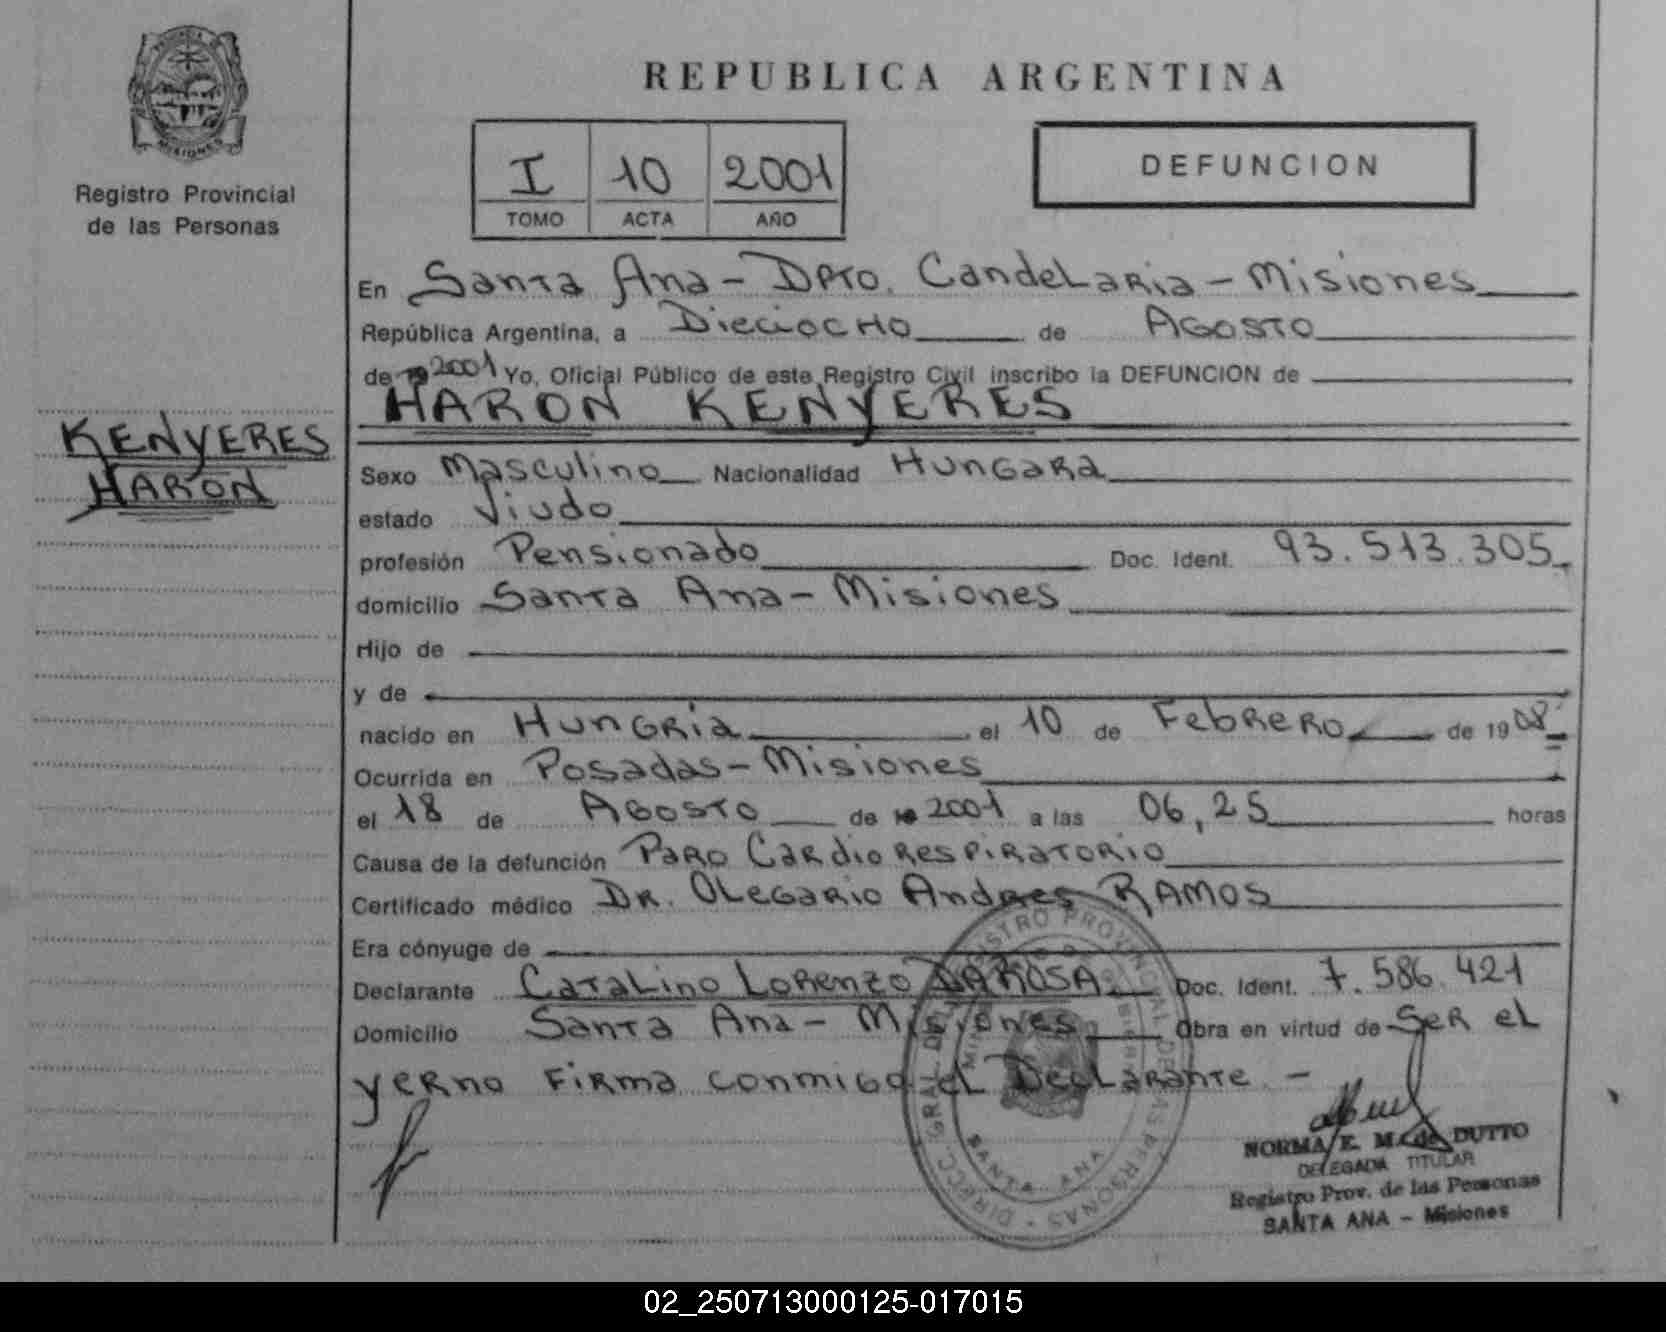 REPUBLICA ARGENTINA
PROVINCIA DE
MISIONES
Registro Provincial
de las Personas
I 10 2001
TOMO ACTA AÑO
DEFUNCION
En Santa Ana - Dpto. Candelaria - Misiones
República Argentina, a Dieciocho de Agosto
de 2001 Yo, Oficial Público de este Registro Civil inscribo la DEFUNCION de
HARON KENYERES
KENYERES
HARON
Sexo Masculino Nacionalidad Hungara
estado Viudo
profesión Pensionado Doc. Ident. 93.513.305
domicilio Santa Ana - Misiones
Hijo de
y de
nacido en Hungria el 10 de Febrero de 1908
Ocurrida en Posadas - Misiones
el 18 de Agosto de 2001 a las 06,25 horas
Causa de la defunción Paro Cardiorespiratorio
Certificado médico Dr. Olegario Andres RAMOS
Era cónyuge de
Declarante Catalino Lorenzo DAROSA Doc. Ident. 7.586.421
Domicilio Santa Ana - Misiones Obra en virtud de Ser el
yerno Firma conmigo el Declarante -
DIRECC. GRAL. DEL REGISTRO PROVINCIAL DE LAS PERSONAS
SANTA ANA
NORMA E. M. de DUTTO
DELEGADA TITULAR
Registro Prov. de las Personas
SANTA ANA - Misiones
02_250713000125-017015